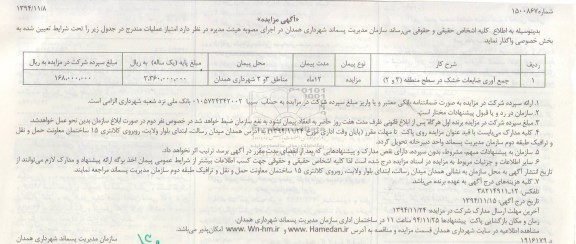 شماره۱۵۰۰۸۶۷
«آگهی مزایده»
۱۳۹۴/۱۱/۸
بدینوسیله به اطلاع کلیه اشخاص حقیقی و حقوقی می‌رساند سازمان مدیریت پسماند شهرداری همدان در اجرای مصوبه هیئت مدیره در نظر دارد امتیاز عملیات مندرج در جدول زیر را تحت شرایط تعیین شده به
بخش خصوصی واگذار نماید.
ردیف شرح کار نوع پیمان مدت پیمان محل پیمان مبلغ پایه (یک ساله) به ریال مبلغ سپرده شرکت در مزایده به ریال
۱ جمع آوری ضایعات خشک در سطح منطقه (۳ و ۲) مزایده ۱۲ماه مناطق ۳و ۲ شهرداری همدان ۳،۳۶۰،۰۰۰،۰۰۰ ۱۶۸،۰۰۰،۰۰۰
۱. ارائه سپرده شرکت در مزایده به صورت ضمانتنامه بانکی معتبر و یا واریز مبلغ سپرده شرکت در مزایده به حساب سیبا ۰۱۰۵۷۲۴۳۴۲۰۰۲ بانک ملی نزد شعبه شهرداری الزامی است.
۲. سازمان در رد و یا قبول پیشنهادات مختار است.
۳. مبلغ سپرده شرکت در مزایده برنده اول هرگاه پس از ابلاغ قانونی ظرف مدت هفت روز حاضر به انعقاد پیمان نشود به نفع سازمان ضبط خواهد شد در خصوص نفر دوم در صورت ابلاغ سازمان بدین نحو عمل خواهدشد.
۴. مدارک می‌بایست با قید عنوان مزایده روی پاکت تا مهلت مقرر (پایان وقت اداری مورخ ۱۳۹۴/۱۱/۲۴) به آدرس همدان میدان رسالت، ابتدای بلوار ولایت، روبروی کلانتری ۱۵ ساختمان معاونت حمل و نقل
و ترافیک طبقه دوم سازمان مدیریت پسماند واحد دبیرخانه تحویل گردد.
۵. سازمان به پیشنهادات مبهم، مشروط، بدون سپرده، دارای نقص مدارک و پیشنهادهایی که بعد از انقضای مدت مقرر در آگهی برسد، ترتیب اثر نخواهد داد.
۶. سایر اطلاعات و جزئیات مربوط به مزایده در اسناد مزایده درج شده است لذا کلیه اشخاص حقیقی و حقوقی جهت کسب اطلاعات بیشتر از شرایط عمومی پیمان اخذ برگه ارائه پیشنهاد و مدارک لازم می‌توانند از
تاریخ انتشار آگهی به محل سازمان به نشانی همدان میدان رسالت، ابتدای بلوار ولایت، روبروی کلانتری ۱۵ ساختمان معاونت حمل و نقل و ترافیک طبقه دوم سازمان مدیریت پسماند مراجعه نمایند.
۷. کلیه هزینه‌های درج آگهی به عهده برنده می‌باشد.
تلفکس: ۱۲-۳۸۲۱۴۹۱۱
تاریخ درج آگهی: ۱۳۹۴/۱۱/۱۵
آخرین مهلت ارسال مدارک: ۱۳۹۴/۱۱/۲۴
زمان و مکان بازگشایی پاکت پیشنهادها ۹۴/۱۱/۲۵ ساعت ۱۱ در ساختمان اداری سازمان مدیریت پسماند شهرداری همدان
مشاهده اطلاعیه در سایت شهرداری همدان قسمت مزایده و مناقصه به آدرس www. Hamedan.ir و www. Wn-hm.ir امکان‌پذیر می‌باشد.
د ۱۹۱۶۱۷۹
سازمان مدیریت پسماند شهرداری همدان